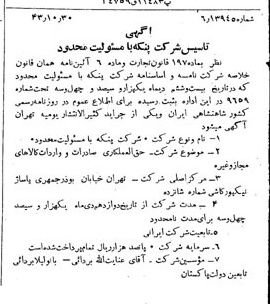 شماره ۱۳۹۴۵ر۶ ۳۰ر۱۰ر۴۳
آگهی
تاسیس شرکت پنکه با مسئولیت محدود
نظر بماده ۱۹۷ قانون تجارت و ماده ۶ آئین‌نامه همان قانون
خلاصه شرکت نامه و اساسنامه شرکت پنکه با مسئولیت محدود
که در تاریخ بیست و ششم دیماه یکهزار و سیصد و چهل و سه تحت شماره
۹۶۵۹ در این اداره بثبت رسیده برای اطلاع عموم در روزنامه رسمی
کشور شاهنشاهی ایران و یکی از جراید کثیرالانتشار یومیه تهران
آگهی میشود
۱ - نام و نوع شرکت - شرکت پنکه با مسئولیت محدود
۲ - موضوع شرکت - حق‌العملکاری صادرات و واردات کالاهای
مجاز و غیره
۳ - مرکز اصلی شرکت - تهران خیابان بوذرجمهری پاساژ
نیکپور کاشی شماره شانزده
۴ - مدت شرکت از تاریخ دوازدهم دی‌ماه یکهزار و سیصد
چهل و سه برای مدت نامحدود
۵ - تابعیت شرکت ایرانی
۶ - سرمایه شرکت - پانصد هزار ریال تمام پرداخت شده است
۷ - مؤسسین شرکت - آقای عنایت‌الله بردائی - بانو لیلا بردائی
تابعین دولت پاکستان